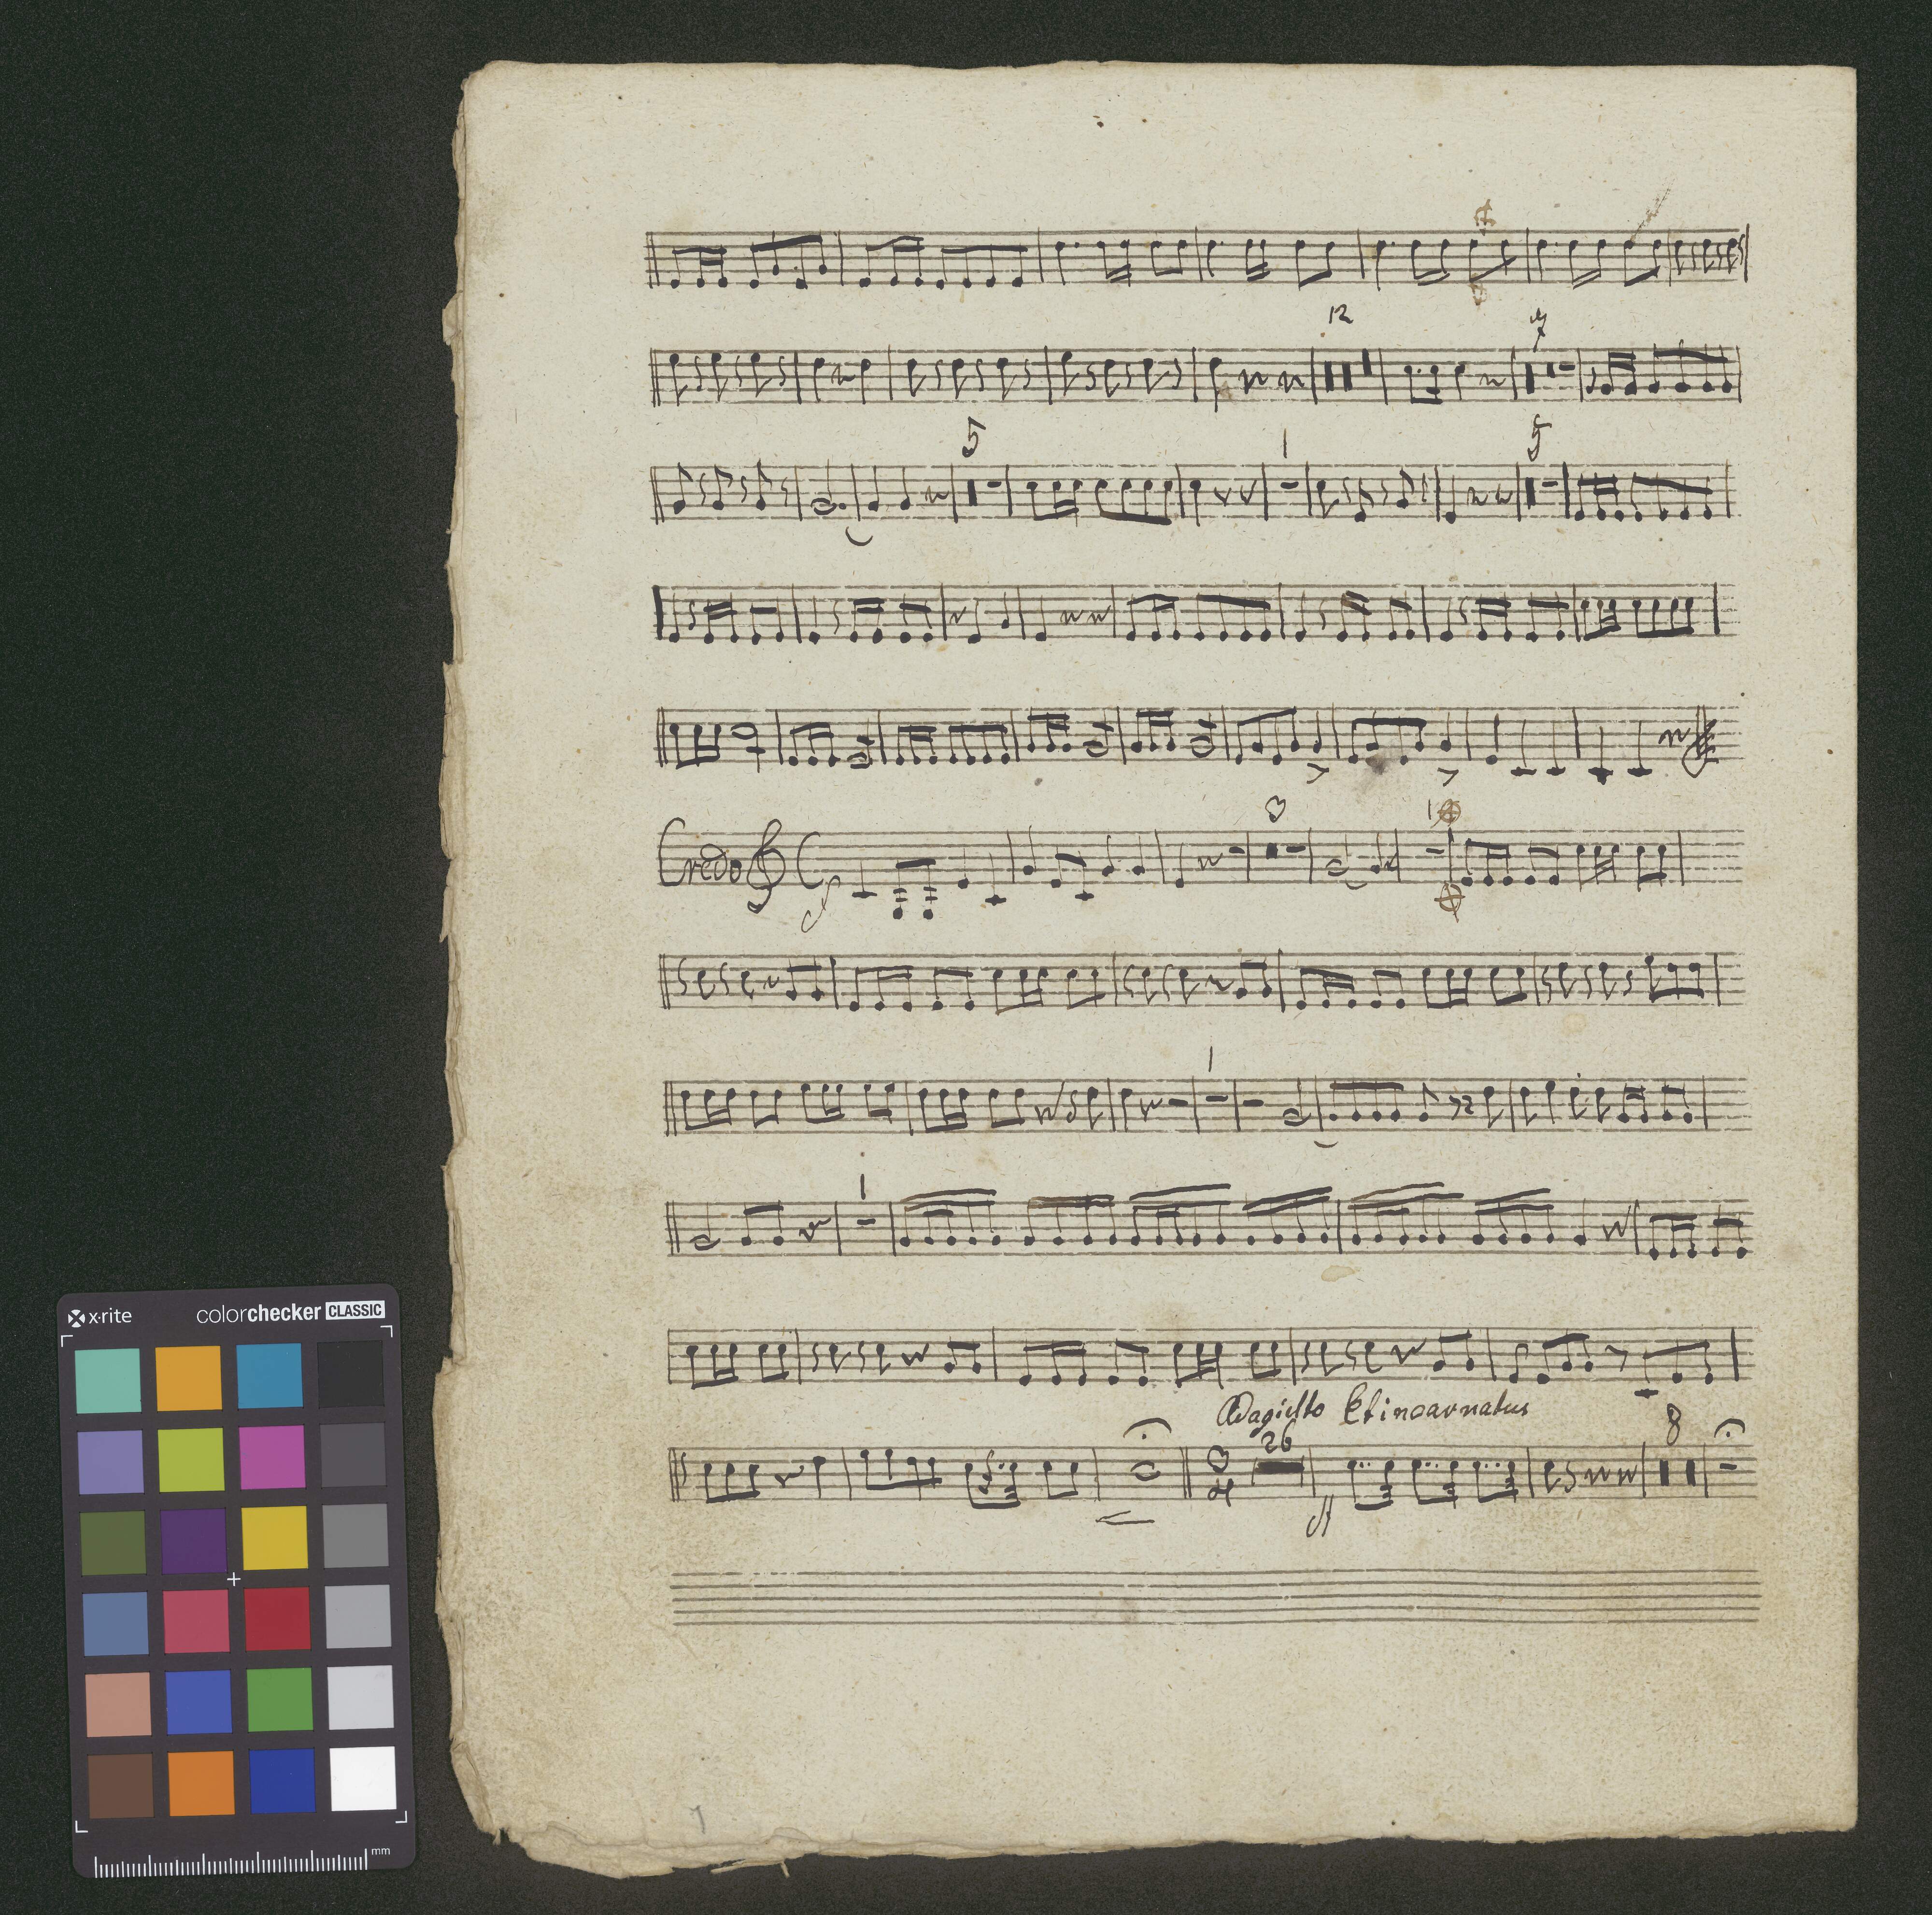 12 7
5 1 5
3 1
Credo
1
1
Adagietto Et incarnatus
26 8
3
4
x·rite colorchecker CLASSIC
mm